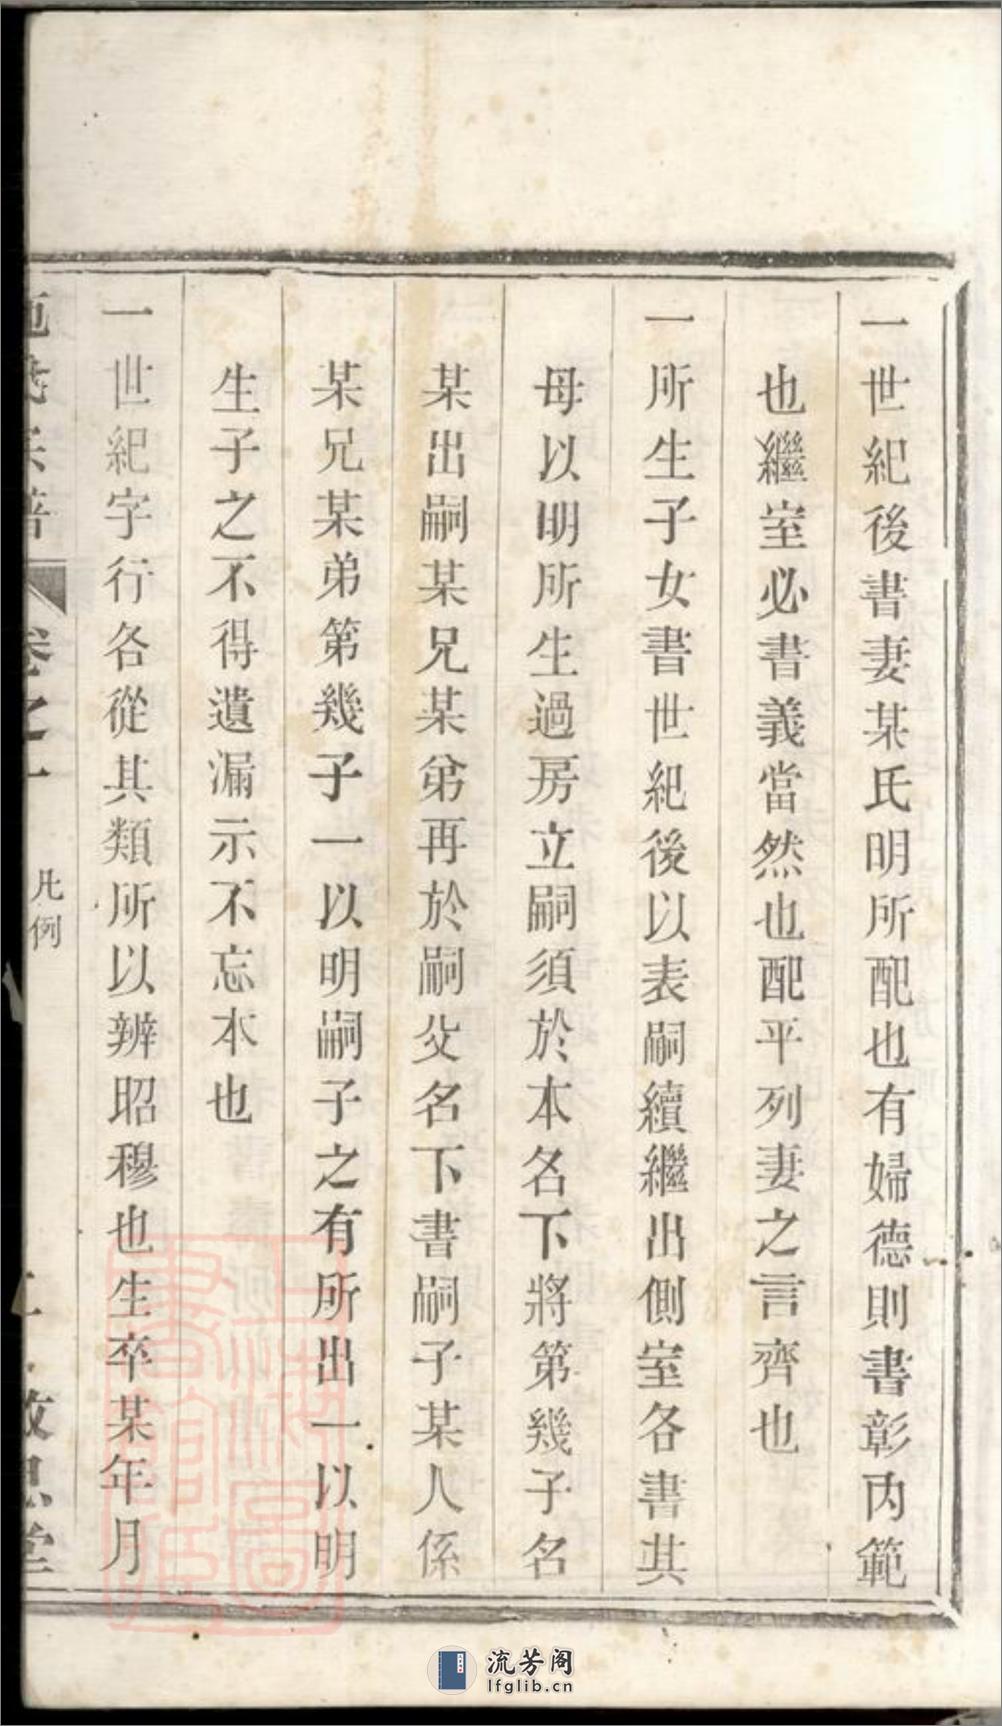 一世紀後書妻某氏明所配也有婦德則書彰內範
也繼室必書義當然也配平列妻之言齊也
一所生子女書世紀後以表嗣續繼出側室各書其
母以明所生過房立嗣須於本名下將第幾子名
某出嗣某兄某弟再於嗣父名下書嗣子某人係
某兄某弟第幾子一以明嗣子之有所出一以明
生子之不得遺漏示不忘本也
一世紀字行各從其類所以辨昭穆也生卒某年月
卷之一
凡例
流芳阁
lfglib.cn